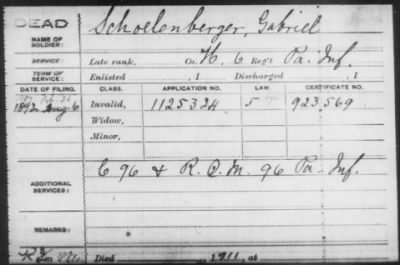 DEAD
Schoelenberger, Gabriel
NAME OF SOLDIER:
SERVICE:
Late rank, Co. H, 6 Reg't Pa. Inf.
TERM OF SERVICE:
Enlisted , 1 Discharged , 1
DATE OF FILING. CLASS. APPLICATION NO. LAW. CERTIFICATE NO.
1892 Aug 6 Invalid, 1125324 5 923,569
Widow,
Minor,
ADDITIONAL SERVICES:
C 96 & R.Q.M. 96 Pa. Inf.
REMARKS:
Died , 1911, at